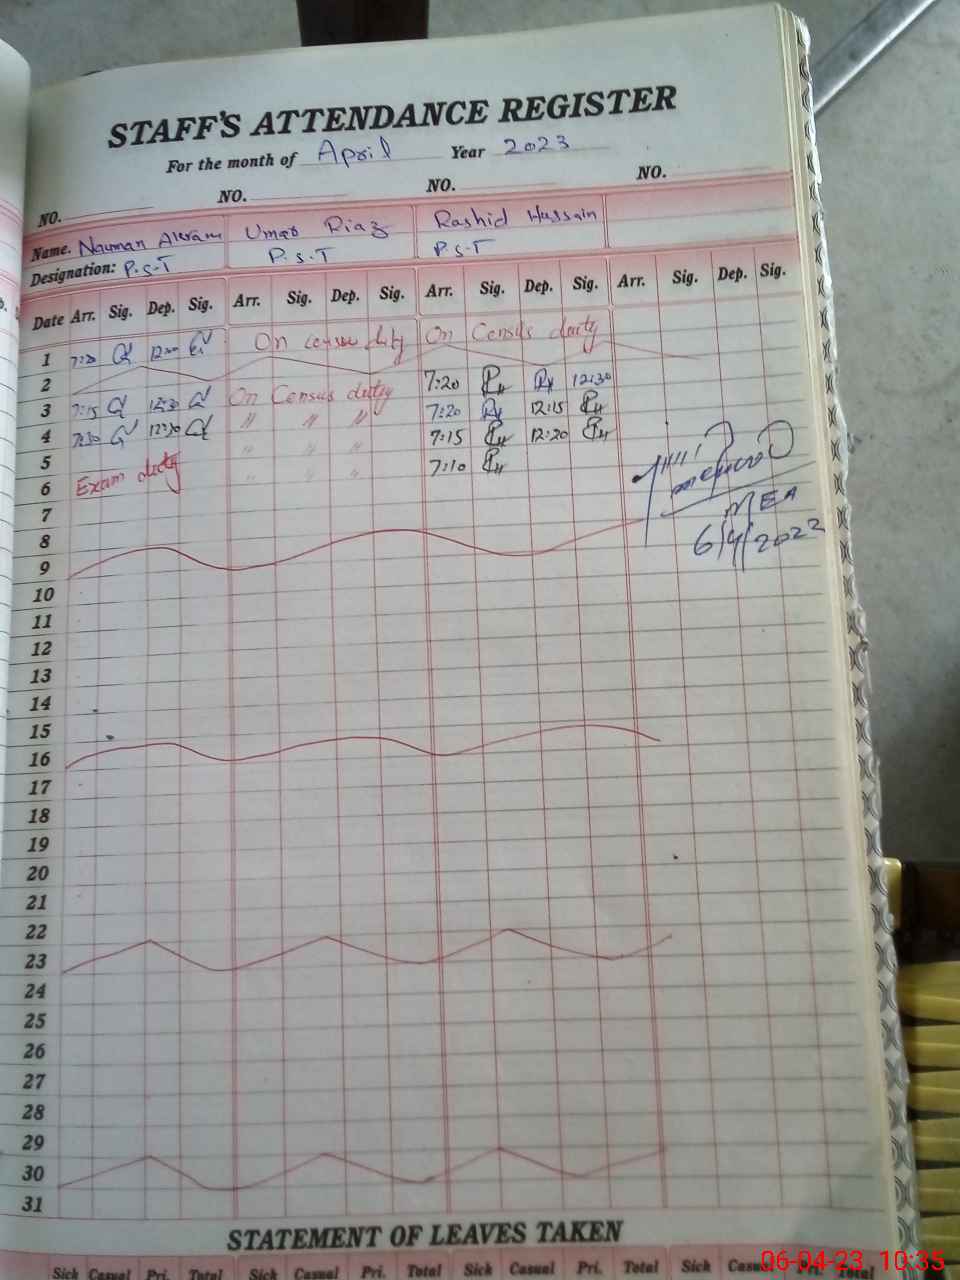 STAFF'S ATTENDANCE REGISTER
For the month of April Year 2023
NO. NO. NO. NO.
Name. Nauman Akram Umar Riaz Rashid Hussain
Designation: P.S.T P.S.T P.S.T
Date Arr. Sig. Dep. Sig. Arr. Sig. Dep. Sig. Arr. Sig. Dep. Sig. Arr. Sig. Dep. Sig.
1 On census duty On Census duty
2
3 7:15 12:30 On Census duty 7:20 12:30
4 7:30 12:30 " " " 7:20 12:15
5 " " " 7:15 12:20
6 Exam duty " " " 7:10
7 MEA
8 6/4/2023
9
10
11
12
13
14
15
16
17
18
19
20
21
22
23
24
25
26
27
28
29
30
31
STATEMENT OF LEAVES TAKEN
Sick Casual Pri. Total Sick Casual Pri. Total Sick Casual Pri. Total Sick Total
06-04-23 10:35